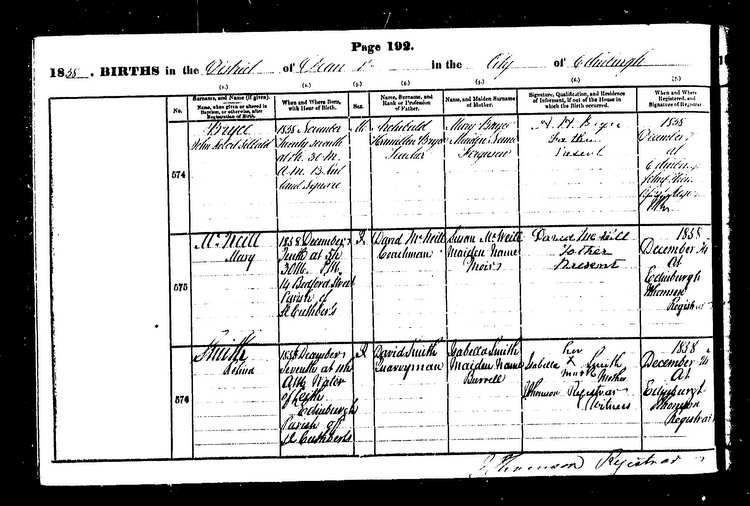 Page 192.
1858. BIRTHS in the District of Dean in the City of Edinburgh
No.
Surname, and Name (if given).
Name, when given or altered in Baptism, or otherwise, after Registration of Birth.
When and Where Born, with Hour of Birth.
Sex.
Name, Surname, and Rank or Profession of Father.
Name, and Maiden Surname of Mother.
Signature, Qualification, and Residence of Informant, if out of the House in which the Birth occurred.
When and Where Registered, and Signature of Registrar
574
Bryce
John
1858 November
Twenty seventh
at 1h. 30 m.
A.M.
Square
M.
Archibald
Hamilton Bryce
Teacher
Mary Bryce
Maiden Name
Ferguson
A. H. Bryce
Father
Present
1858
December
at
575
McNeill
Mary
1858 December
Tenth at 5h
30M. P.M.
14 Bedford Street
Parish of
St Cuthbert's
F.
David McNeill
Coachman
Susan McNeill
Maiden Name
Moir
David McNeill
Father
Present
1858
December 14
At
Edinburgh
Thomson
Registrar
576
Smith
1858 December
Seventh at 11h
A.M. Water
of Leith
Edinburgh
Parish of
St Cuthberts
F.
David Smith
Quarryman
Isabella Smith
Maiden Name
Burrell
her
Isabella X Smith
mark Mother
Thomson Registrar
Witness
1858
December 14
At
Edinburgh
Thomson
Registrar
Thomson Registrar